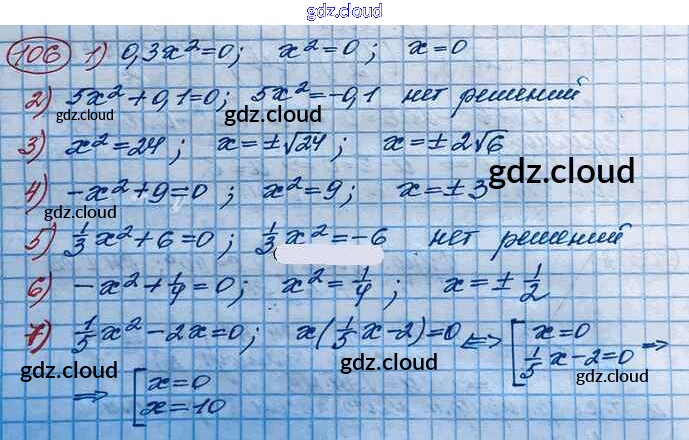 gdz.cloud
106 1) 0,3x²=0; x²=0; x=0
2) 5x²+0,1=0; 5x²=-0,1 нет решений
gdz.cloud gdz.cloud
3) x²=24; x=±√24; x=±2√6
gdz.cloud
4) -x²+9=0; x²=9; x=±3
gdz.cloud
5) 1/3x²+6=0; 1/3x²=-6 нет решений
6) -x²+1/4=0; x²=1/4; x=±1/2
gdz.cloud
7) 1/5x²-2x=0; x(1/5x-2)=0 <=> [x=0
1/5x-2=0 =>
gdz.cloud gdz.cloud gdz.cloud
=> [x=0
x=10